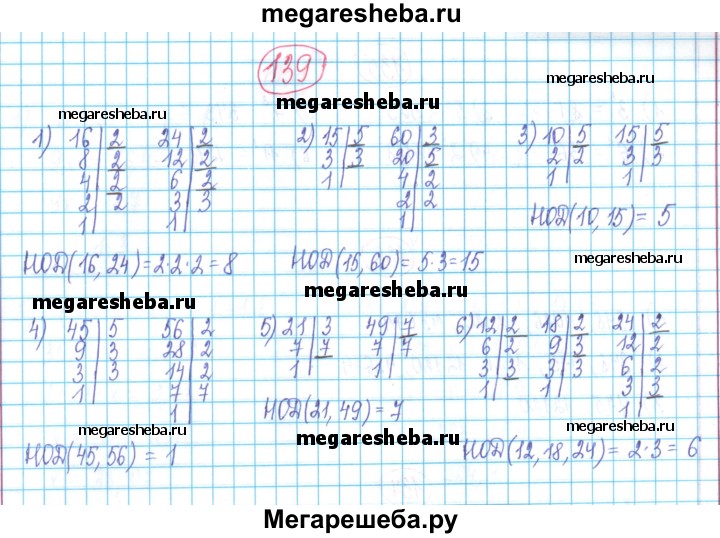 megaresheba.ru
139
megaresheba.ru
megaresheba.ru
megaresheba.ru
1) 16 | 2   24 | 2   2) 15 | 5   60 | 3   3) 10 | 5   15 | 5
8 | 2   12 | 2   3 | 3   20 | 5   2 | 2   3 | 3
4 | 2   6 | 2   1   4 | 2   1   1
2 | 2   3 | 3   2 | 2
1   1   1
НОД(10, 15) = 5
НОД(16, 24) = 2·2·2 = 8   НОД(15, 60) = 5·3 = 15
megaresheba.ru
megaresheba.ru
megaresheba.ru
4) 45 | 5   56 | 2   5) 21 | 3   49 | 7   6) 12 | 2   18 | 2   24 | 2
9 | 3   28 | 2   7 | 7   7 | 7   6 | 2   9 | 3   12 | 2
3 | 3   14 | 2   1   1   3 | 3   3 | 3   6 | 2
1   7 | 7   1   1   3 | 3
1   1
НОД(21, 49) = 7
megaresheba.ru
megaresheba.ru
НОД(45, 56) = 1   НОД(12, 18, 24) = 2·3 = 6
Мегарешеба.ру